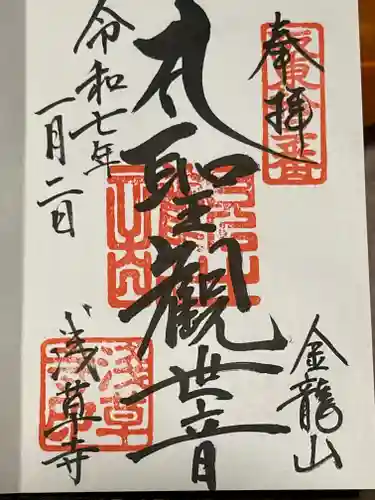 奉拝
金龍山
聖観世音
令和七年
一月二日
浅草寺